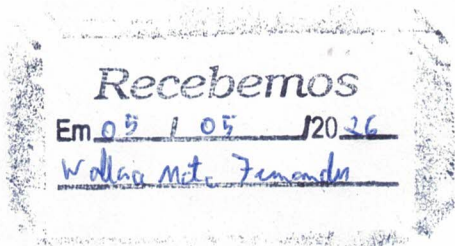 Recebemos
Em 05 / 05 /2026
Wallace Mota Fernandes